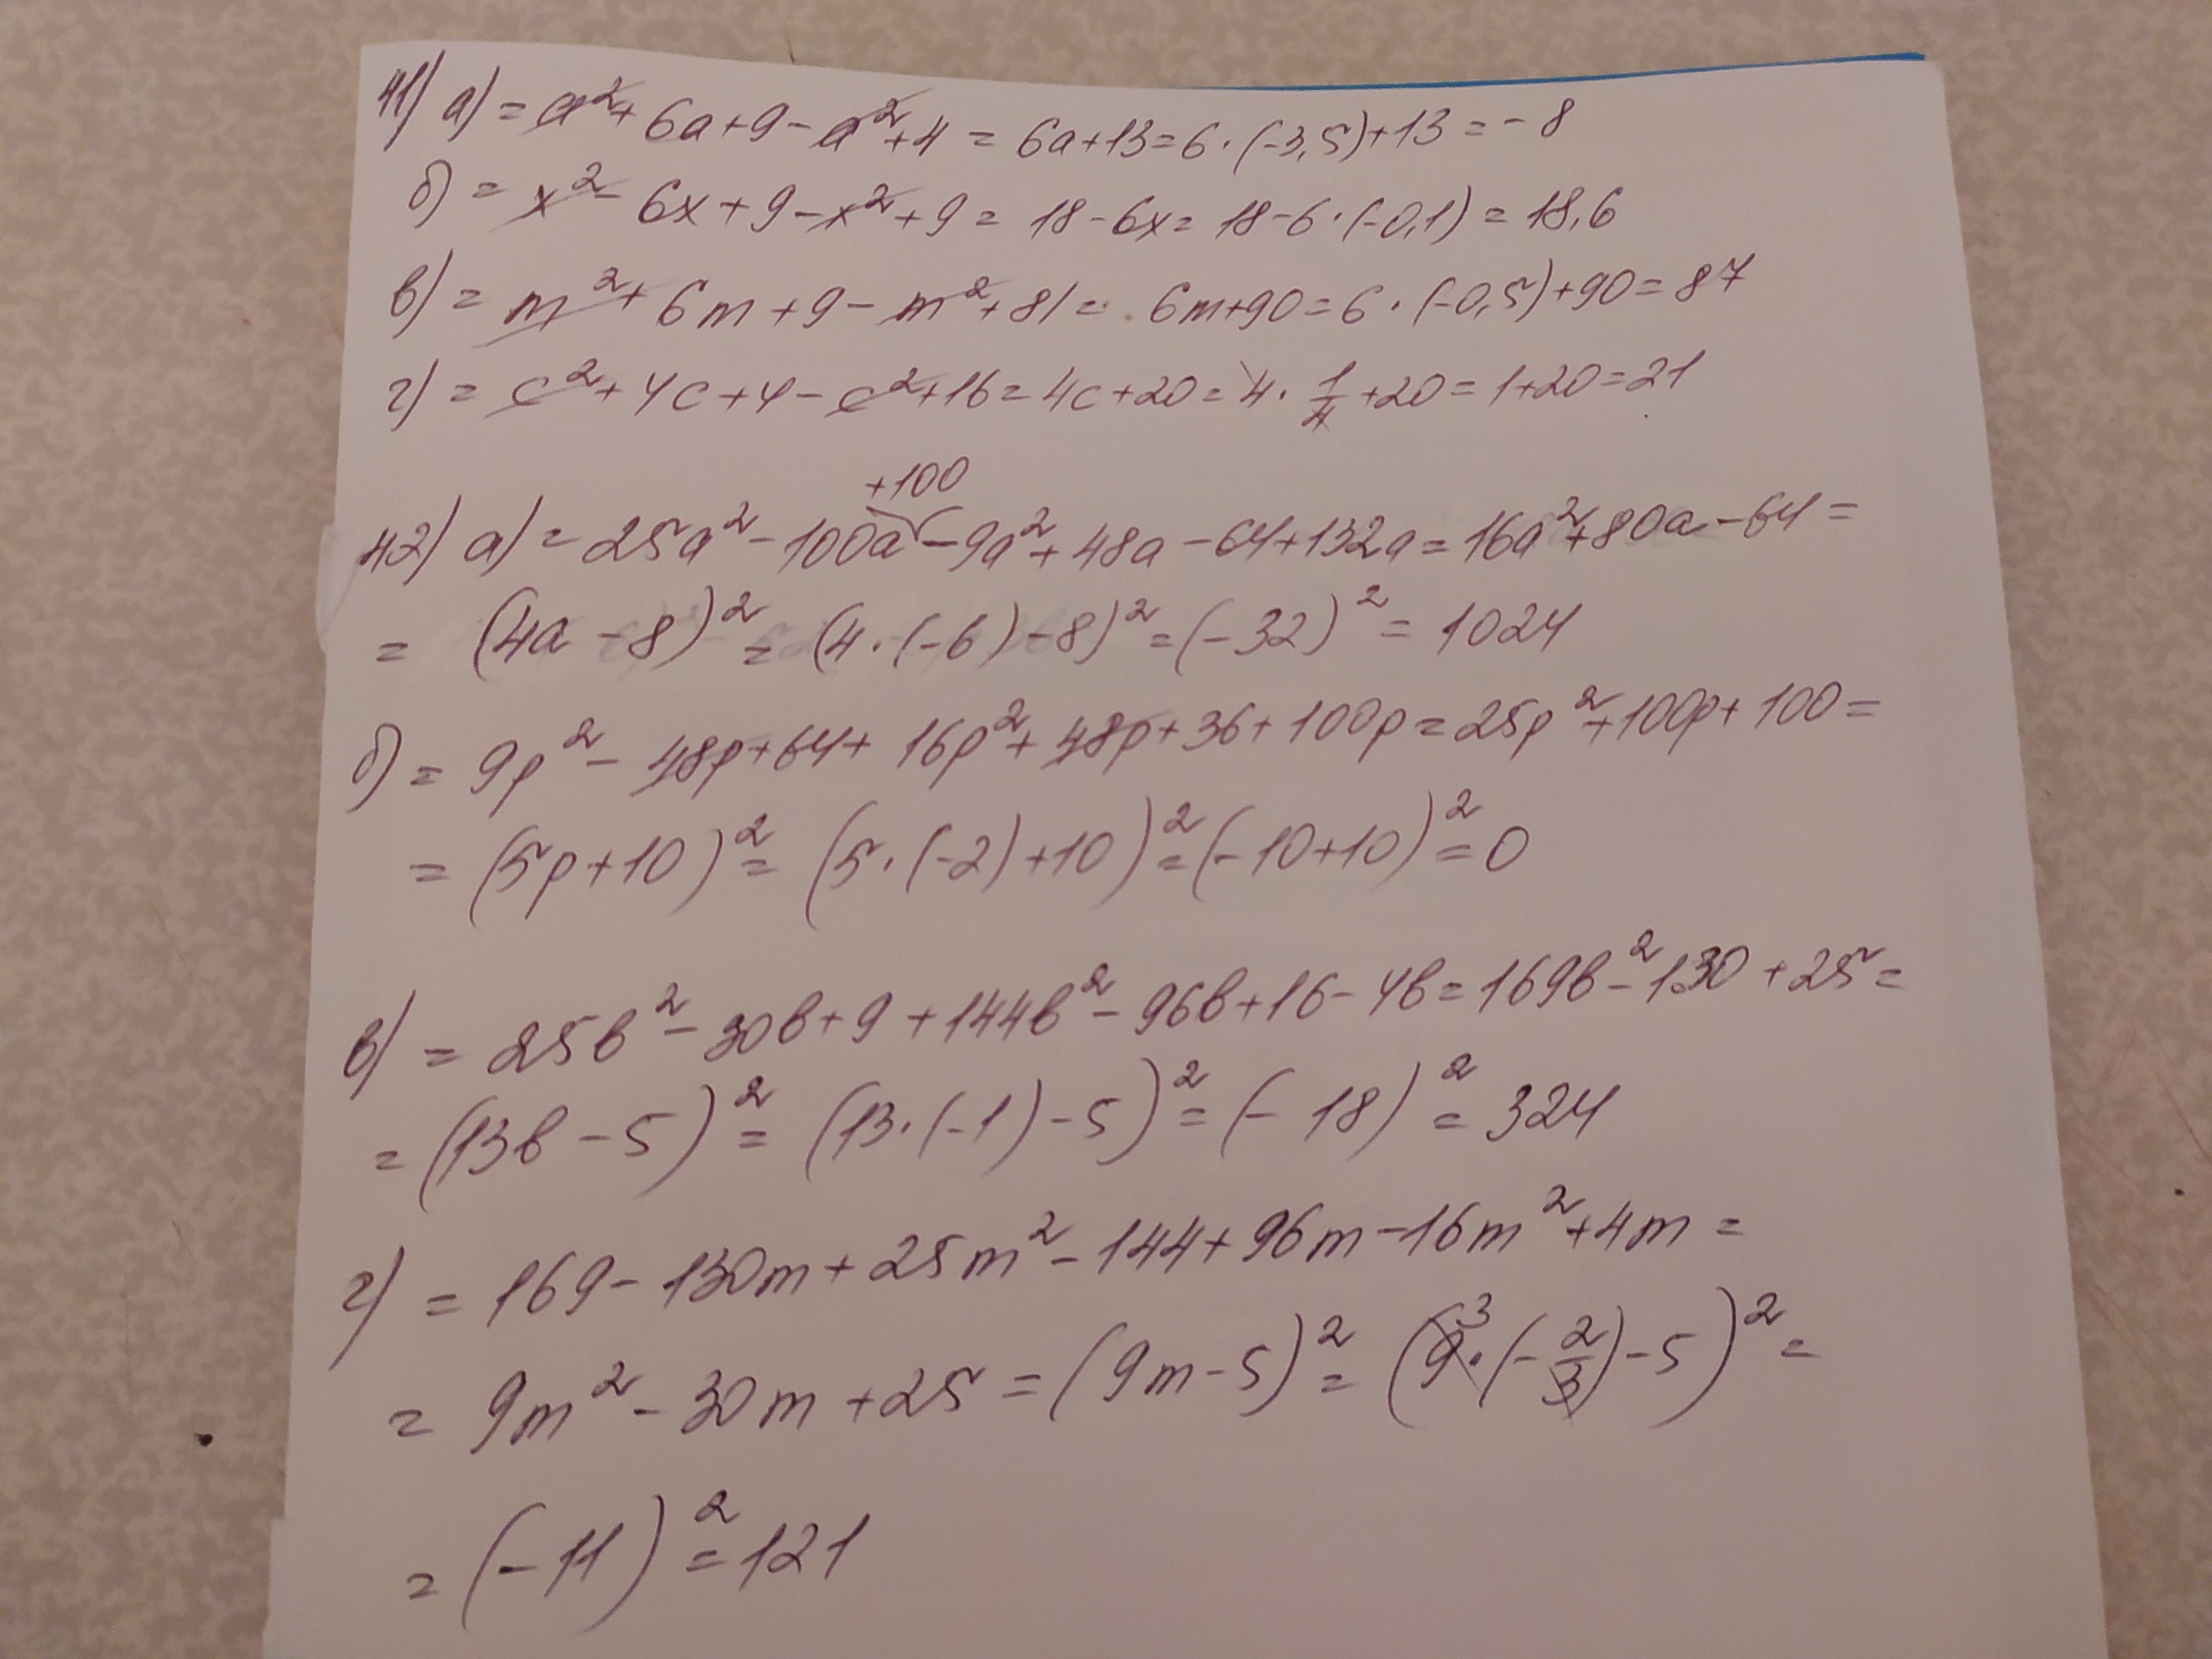 41) а) = a² + 6a + 9 - a² + 4 = 6a + 13 = 6 · (-3,5) + 13 = -8
б) = x² - 6x + 9 - x² + 9 = 18 - 6x = 18 - 6 · (-0,1) = 18,6
в) = m² + 6m + 9 - m² + 81 = 6m + 90 = 6 · (-0,5) + 90 = 87
г) = c² + 4c + 4 - c² + 16 = 4c + 20 = 4 · 1/4 + 20 = 1 + 20 = 21
+100
42) а) = 25a² - 100a - 9a² + 48a - 64 + 132a = 16a² + 80a - 64 =
= (4a - 8)² = (4 · (-6) - 8)² = (-32)² = 1024
б) = 9p² - 48p + 64 + 16p² + 48p + 36 + 100p = 25p² + 100p + 100 =
= (5p + 10)² = (5 · (-2) + 10)² = (-10 + 10)² = 0
в) = 25b² - 30b + 9 + 144b² - 96b + 16 - 4b = 169b² - 130 + 25 =
= (13b - 5)² = (13 · (-1) - 5)² = (-18)² = 324
г) = 169 - 130m + 25m² - 144 + 96m - 16m² + 4m =
= 9m² - 30m + 25 = (9m - 5)² = (9³ · (-2/3) - 5)² =
= (-11)² = 121